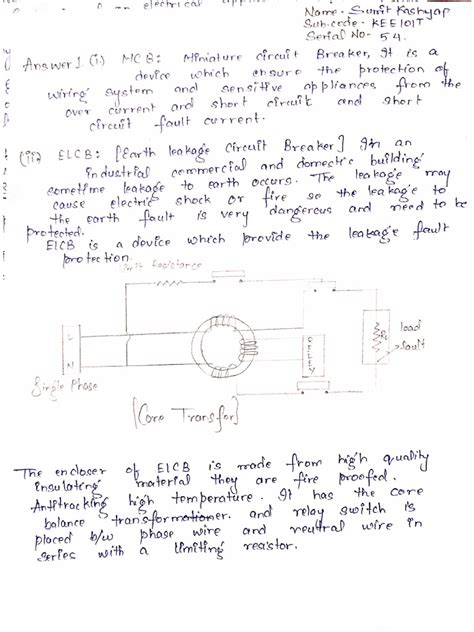 electrical
Name - Sumit Kashyap
Sub. code - KEE101T
Serial No - 54.
Answer 1 (i) MCB: Miniature Circuit Breaker, It is a
device which ensure the protection of
wiring system and sensitive appliances from the
over current and short circuit and short
circuit fault current.
(ii) ELCB: [Earth leakage Circuit Breaker] In an
industrial commercial and domestic building
sometime leakage to earth occurs. The leakage may
cause electric shock or fire so the leakage to
the earth fault is very dangerous and need to be
protected.
ELCB is a device which provide the leakage fault
protection.
Limit Resistance
L
N
Single Phase
RELEY
RL
load
fault
[Core Transfor]
The encloser of ELCB is made from high quality
insulating material they are fire proofed.
Antitracking high temperature. It has the core
balance transformationer. and relay switch is
placed b/w phase wire and neutral wire in
series with a limiting reastor.